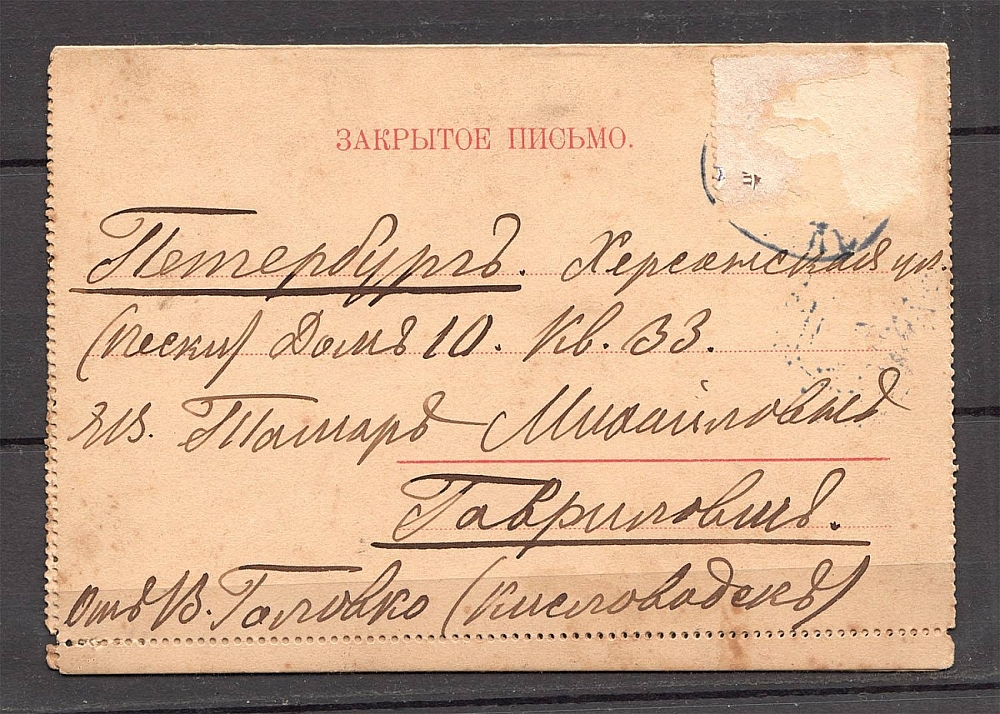 ЗАКРЫТОЕ ПИСЬМО.
Петербургъ. Херсонская ул.
(Пески) Домъ 10. Кв. 33.
ЕВ. Тамарѣ Михайловнѣ
Гавриловнѣ.
отъ В. Головко (Кисловодскъ)